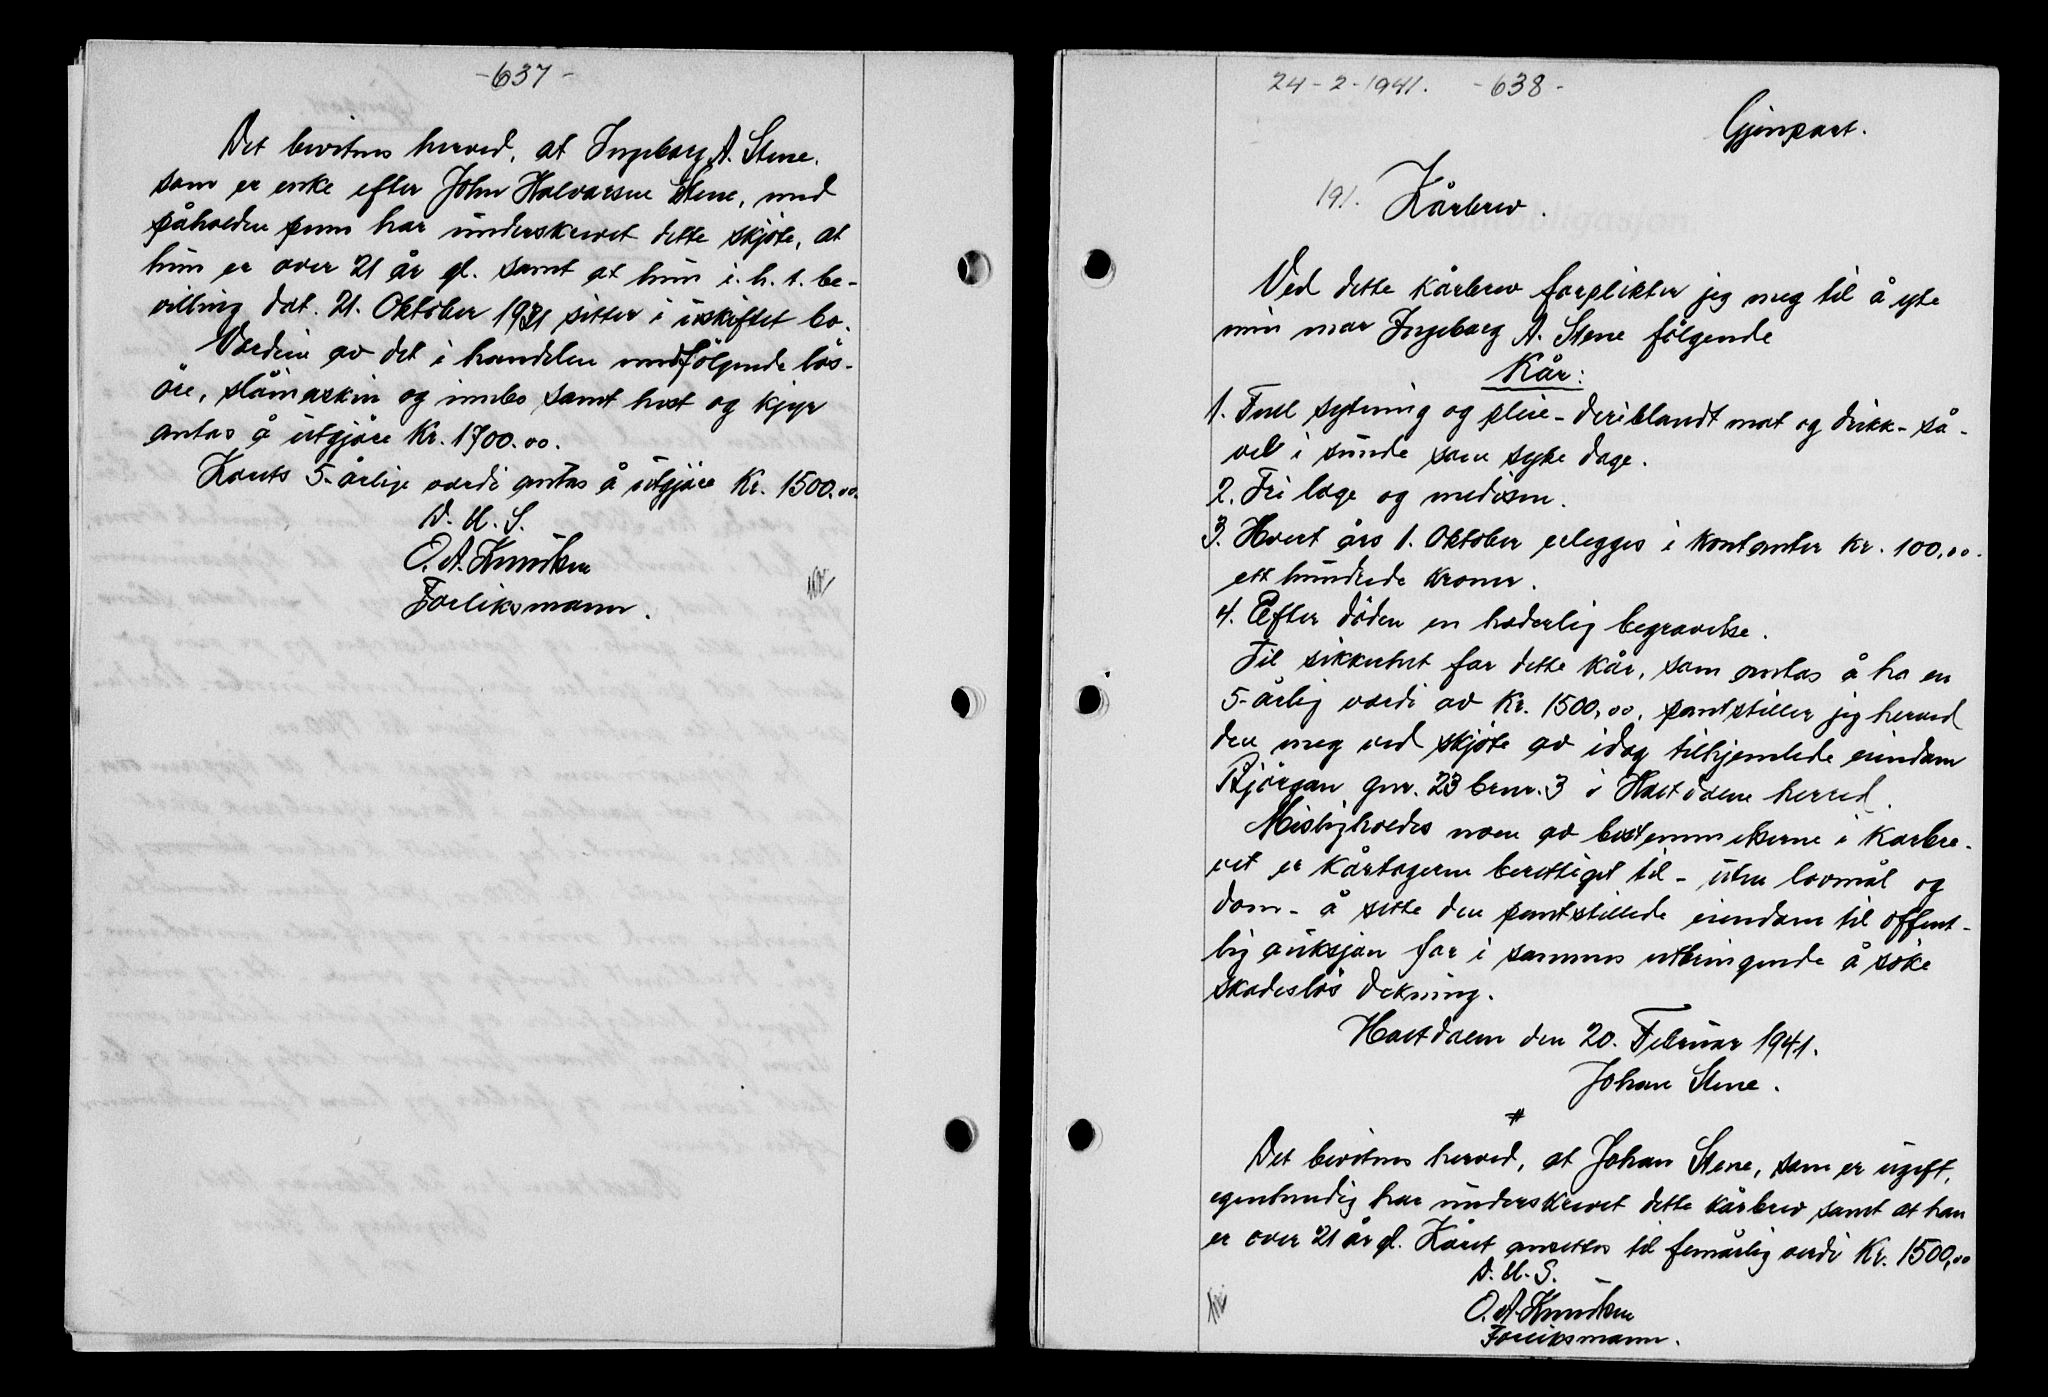 -637-
Det bevitnes herved, at Ingeborg A. Stene,
som er enke efter John Halvorsen Stene, med
påholden penn har underskrevet dette skjöte, at
hun er over 21 år gl. samt at hun i.h.t. be-
villing dat. 21. Oktober 1931 sitter i uskiftet bo.
Verdien av det i handelen medfölgende lös-
öre, slåmaskin og innbo samt hest og kjyr
antas å utgjöre Kr. 1700.00.
Kårets 5-årlige verdi antas å utgjöre Kr. 1500.00.
D. U. S.
O. A. Knudsen
Forliksmann.
24-2-1941. -638-
Gjenpart.
191. Kårbrev.
Ved dette kårbrev forplikter jeg meg til å yte
min mor Ingeborg A. Stene fölgende
Kår:
1. Full sytning og pleie - deriblandt mat og drikk - så-
vel i sunde som syke dage.
2. Fri læge og medisin.
3. Hvert års 1. Oktober erlegges i kontanter kr. 100,00.
ett hundrede kroner.
4. Efter döden en hæderlig begravelse.
Til sikkerhet for dette kår, som antas å ha en
5-årlig verdi av Kr. 1500,00, pantstiller jeg herved
den meg ved skjöte av idag tilhjemlede eiendom
Björgan gnr. 23 brnr. 3 i Holtålen herred.
Misligholdes noen av bestemmelserne i kårbre-
vet er kårtageren berettiget til - uten lovmål og
dom - å sette den pantstillede eiendom til offent-
lig auksjon for i sammes utbringende å söke
skadeslös dekning.
Holtdalen den 20. Februar 1941.
Johan Stene.
Det bevitnes herved, at Johan Stene, som er ugift,
egenhendig har underskrevet dette kårbrev samt at han
er over 21 år gl. Kåret ansettes til femårlig verdi Kr. 1500,00
D. U. S.
O. A. Knudsen
Forliksmann.